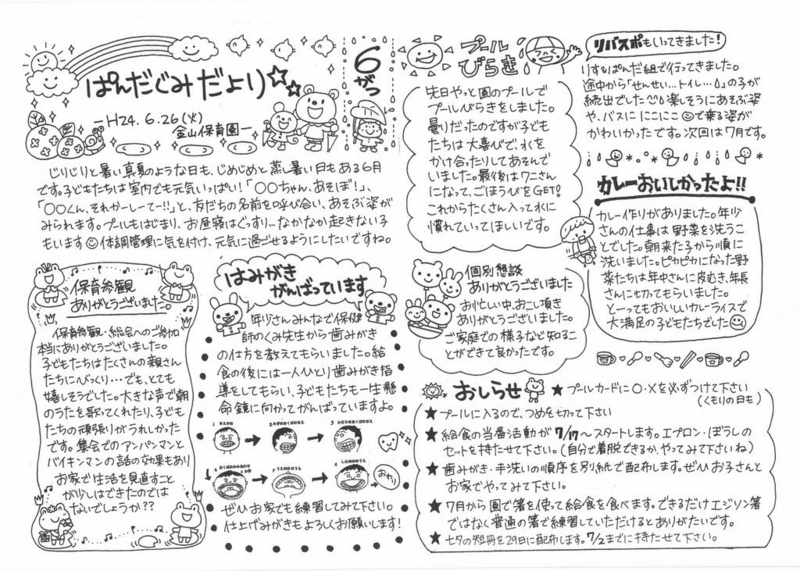 ぱんだぐみだより
6がつ
ーH24. 6.26(火)
金山保育園ー
じりじりと暑い真夏のような日も、じめじめと蒸し暑い日もある6月
です。子どもたちは室内でも元気いっぱい!「〇〇ちゃん、あそぼ!」、
「〇〇くん、それかーしーてー!!」と、友だちの名前を呼び合い、あそぶ姿が
みられます。プールもはじまり、お昼寝はぐっすり…なかなか起きない子
もいます 体調管理に気を付け、元気に過ごせるようにしたいですね。
プール
びらき
先日やっと園のプールで
プールびらきをしました。
曇りだったのですが子ども
たちは大喜びで、水を
かけ合ったりしてあそんで
いました。最後はワニさん
になって、ごほうびをGET!
これからたくさん入って水に
慣れていってほしいです。
リバスポもいってきました!
りす&ぱんだ組で行ってきました。
途中から「せんせい…トイレ…」の子が
続出でした 楽しそうにあそぶ姿
や、バスに にこにこ で乗る姿が
かわいかったです。次回は7月です。
カレーおいしかったよ!!
カレー作りがありました。年少
さんの仕事は野菜を洗うこ
とでした。朝来た子から順に
洗いました。ピカピカになった野
菜たちは年中さんに皮むき、年長
さんに切ってもらいました。
とーってもおいしいカレーライスで
大満足の子どもたちでした
保育参観
ありがとうございました。
保育参観・給食へのご参加
本当にありがとうございました。
子どもたちはたくさんの親さん
たちにびっくり…でも、とても
嬉しそうでした。大きな声で朝
のうたを歌ってくれたり、子ども
たちの頑張りがうれしかった
です。集会でのアンパンマンと
バイキンマンの話の効果もあり
お家が生活を見直すこと
が少しはできたのでは
ないでしょうか??
はみがき
がんばっています
年少さんみんなで保健
師のくみ先生から歯みがき
の仕方を教えてもらいました。給
食の後には一人ひとり歯みがき指
導をしてもらい、子どもたちも一生懸
命鏡に向かってがんばっていますよ。
おわり
ぜひお家でも練習してみて下さい。
仕上げみがきもよろしくお願いします!
個別懇談
ありがとうございました
お忙しい中、おこし頂き
ありがとうございました。
ご家庭での様子など知るこ
とができて良かったです。
おしらせ
★プールカードに〇・×を必ずつけて下さい
(くもりの日も)
★プールに入るので、つめを切って下さい
★給食の当番活動が7/17〜スタートします。エプロン・ぼうしの
セットを持たせて下さい。(自分で着脱できるか、やってみて下さいね)
★歯みがき・手洗いの順序を別紙で配布します。ぜひお子さんと
お家でやってみて下さい。
★7月から園で箸を使って給食を食べます。できるだけエジソン箸
ではなく普通の箸で練習していただけるとありがたいです。
★七夕の短冊を29日に配布します。7/2までに持たせて下さい。